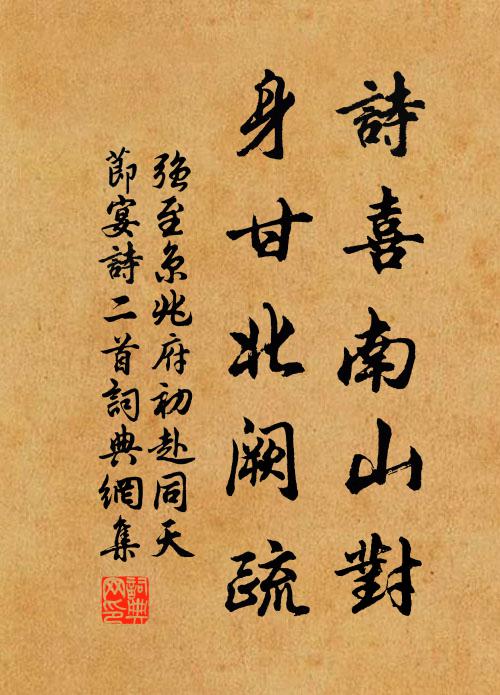 詩喜南山對
身甘北闕疏
強至京兆府初赴同天
節宴詩二首詞典網集
詞典
网印